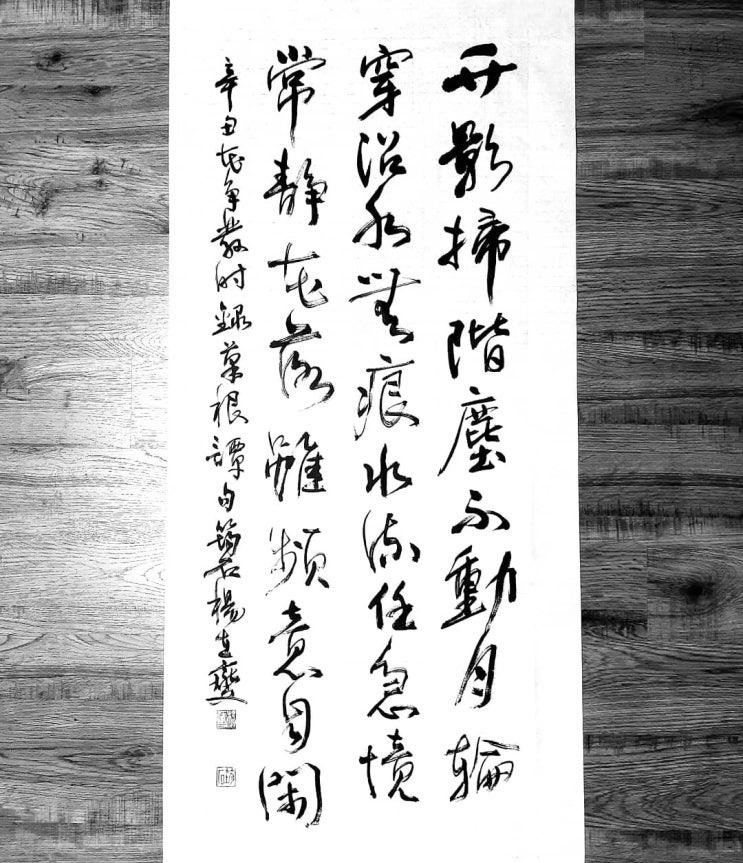 竹影掃階塵不動月輪
穿沼水無痕水流任急境
常靜花落雖頻意自閑
辛丑花爭發時錄菜根譚句石楊